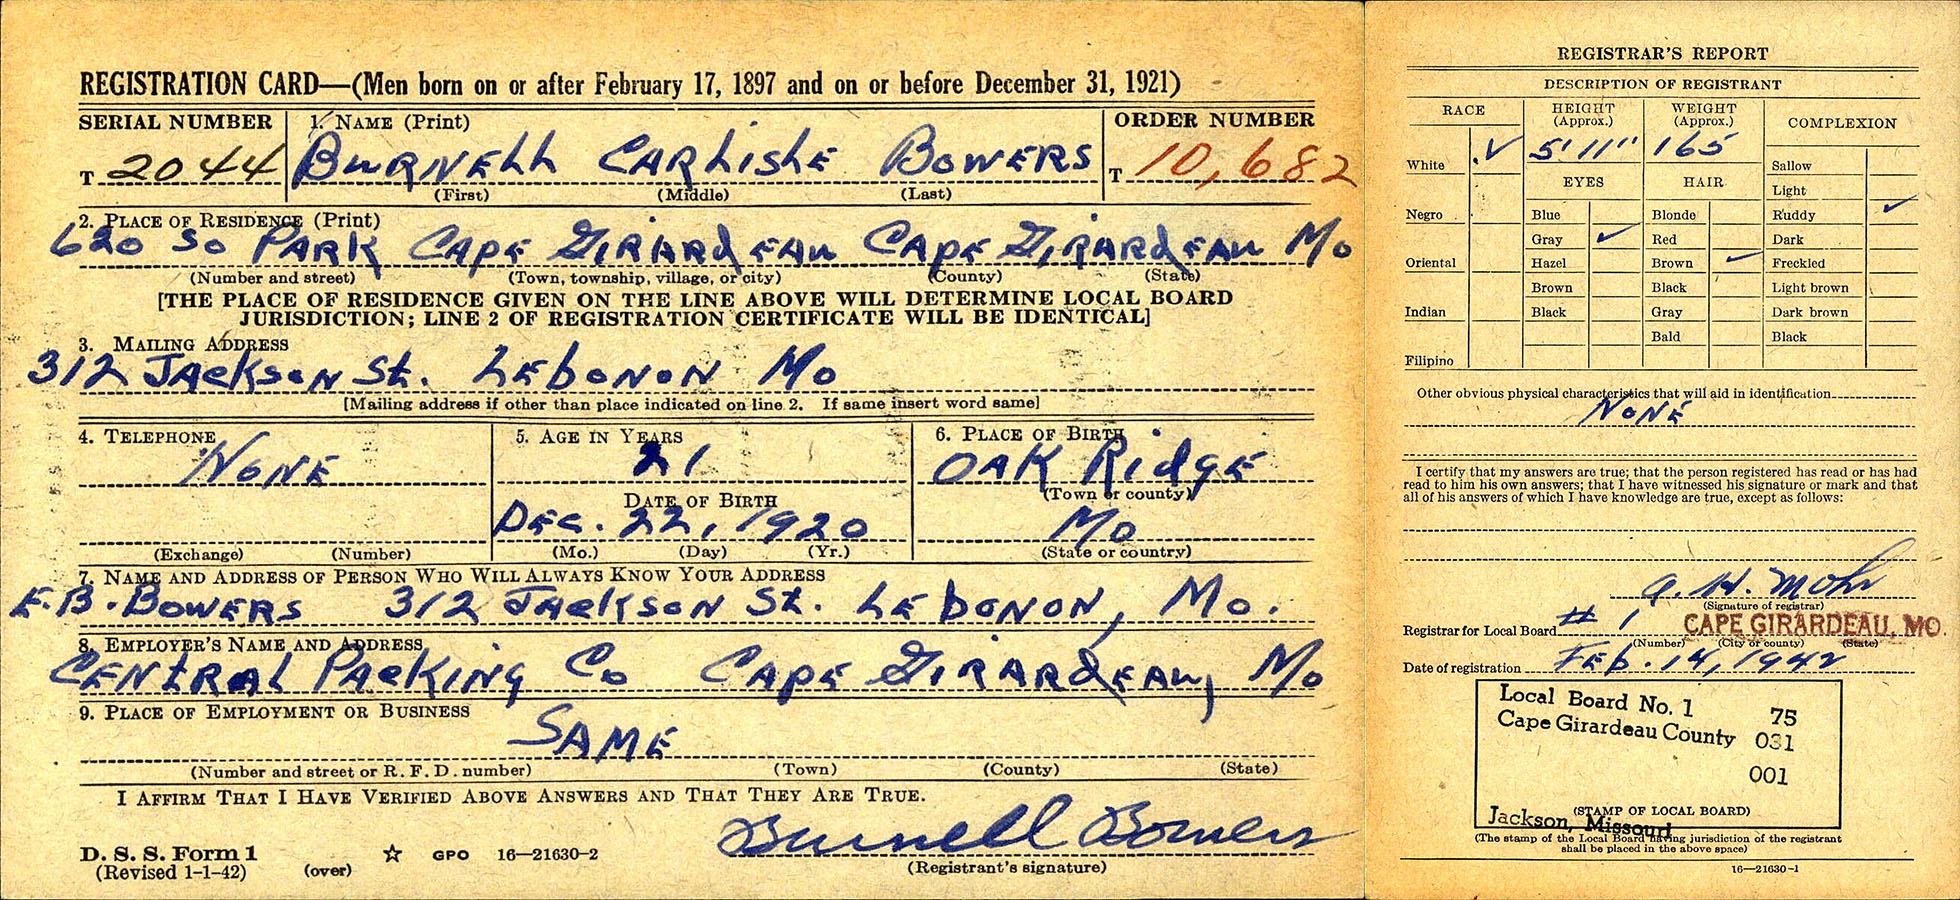 REGISTRATION CARD—(Men born on or after February 17, 1897 and on or before December 31, 1921)
SERIAL NUMBER 1. NAME (Print) ORDER NUMBER
T 2044 BURNELL CARLISLE BOWERS T 10,682
(First) (Middle) (Last)
2. PLACE OF RESIDENCE (Print)
620 So PARK CAPE GIRARDEAU CAPE GIRARDEAU Mo
(Number and street) (Town, township, village, or city) (County) (State)
[THE PLACE OF RESIDENCE GIVEN ON THE LINE ABOVE WILL DETERMINE LOCAL BOARD
JURISDICTION; LINE 2 OF REGISTRATION CERTIFICATE WILL BE IDENTICAL]
3. MAILING ADDRESS
312 JACKSON St. LEbONON Mo
[Mailing address if other than place indicated on line 2. If same insert word same]
4. TELEPHONE 5. AGE IN YEARS 6. PLACE OF BIRTH
NONE 21 OAK RidgE
DATE OF BIRTH (Town or county)
DEC. 22, 1920 MO
(Exchange) (Number) (Mo.) (Day) (Yr.) (State or country)
7. NAME AND ADDRESS OF PERSON WHO WILL ALWAYS KNOW YOUR ADDRESS
E.B. BOWERS 312 JACKSON St. LEbONON, Mo.
8. EMPLOYER'S NAME AND ADDRESS
CENTRAL PACKING Co CAPE GIRARDEAU, Mo
9. PLACE OF EMPLOYMENT OR BUSINESS
SAME
(Number and street or R. F. D. number) (Town) (County) (State)
I AFFIRM THAT I HAVE VERIFIED ABOVE ANSWERS AND THAT THEY ARE TRUE.
Burnell Bowers
D. S. S. Form 1 ☆ GPO 16—21630-2 (Registrant's signature)
(Revised 1-1-42) (over)
REGISTRAR'S REPORT
DESCRIPTION OF REGISTRANT
RACE HEIGHT (Approx.) WEIGHT (Approx.) COMPLEXION
White ✓ 5'11" 165 Sallow
EYES HAIR Light
Negro Blue Blonde Ruddy ✓
Gray ✓ Red Dark
Oriental Hazel Brown ✓ Freckled
Brown Black Light brown
Indian Black Gray Dark brown
Bald Black
Filipino
Other obvious physical characteristics that will aid in identification
NONE
I certify that my answers are true; that the person registered has read or has had
read to him his own answers; that I have witnessed his signature or mark and that
all of his answers of which I have knowledge are true, except as follows:
A. H. Mohr
(Signature of registrar)
Registrar for Local Board # 1 CAPE GIRARDEAU, MO.
(Number) (City or county) (State)
Date of registration FEb. 14, 1942
Local Board No. 1 75
Cape Girardeau County 031
001
(STAMP OF LOCAL BOARD)
Jackson, Missouri
(The stamp of the Local Board having jurisdiction of the registrant
shall be placed in the above space)
16—21630-1